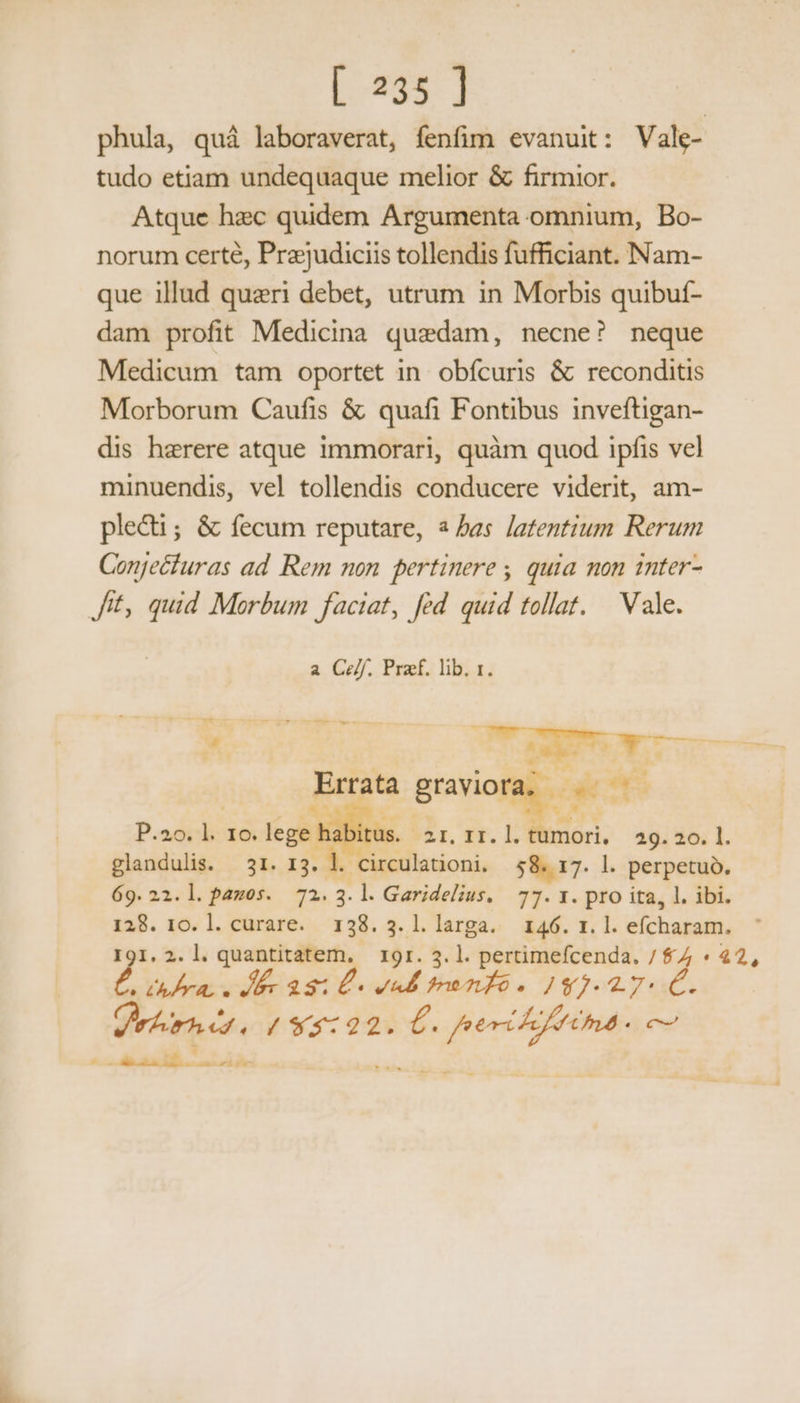 [ 235 ]
phula, quâ laboraverat, ſenſim evanuit: Vale-
tudo etiam undequaque melior & firmior.
Atque hæc quidem Argumenta omnium, Bo-
norum certè, Præjudiciis tollendis ſufficiant. Nam-
que illud quæri debet, utrum in Morbis quibuſ-
dam proſit Medicina quædam, necne? neque
Medicum tam oportet in obſcuris & reconditis
Morborum Cauſis & quaſi Fontibus inveſtigan-
dis hærere atque immorari, quàm quod ipſis vel
minuendis, vel tollendis conducere viderit, am-
plecti; & ſecum reputare, a has latentium Rerum
Conjecturas ad Rem non pertinere; quia non inter-
ſit, quid Morbum faciat, ſed quid tollat. Vale.
a Celſ. Præf. lib. 1.
Errata graviora.
P. 20. l. 10. lege habitus. 21. 11. l. tumori. 29. 20. l.
glandulis. 31. 13. l. circulationi. 58. 17. l. perpetuò.
69. 22. l. panos. 72. 3. l. Garidelius. 77. 1. pro ita, l. ibi.
128. 10. l. curare. 138. 3. l. larga. 146. 1. l. eſcharam.
191. 2. l. quantitatem. 191. 3. l. pertimeſcenda. 184. 22,
l. infra. 25. l. sub mento. 187. 27. l.
185. 22. l.